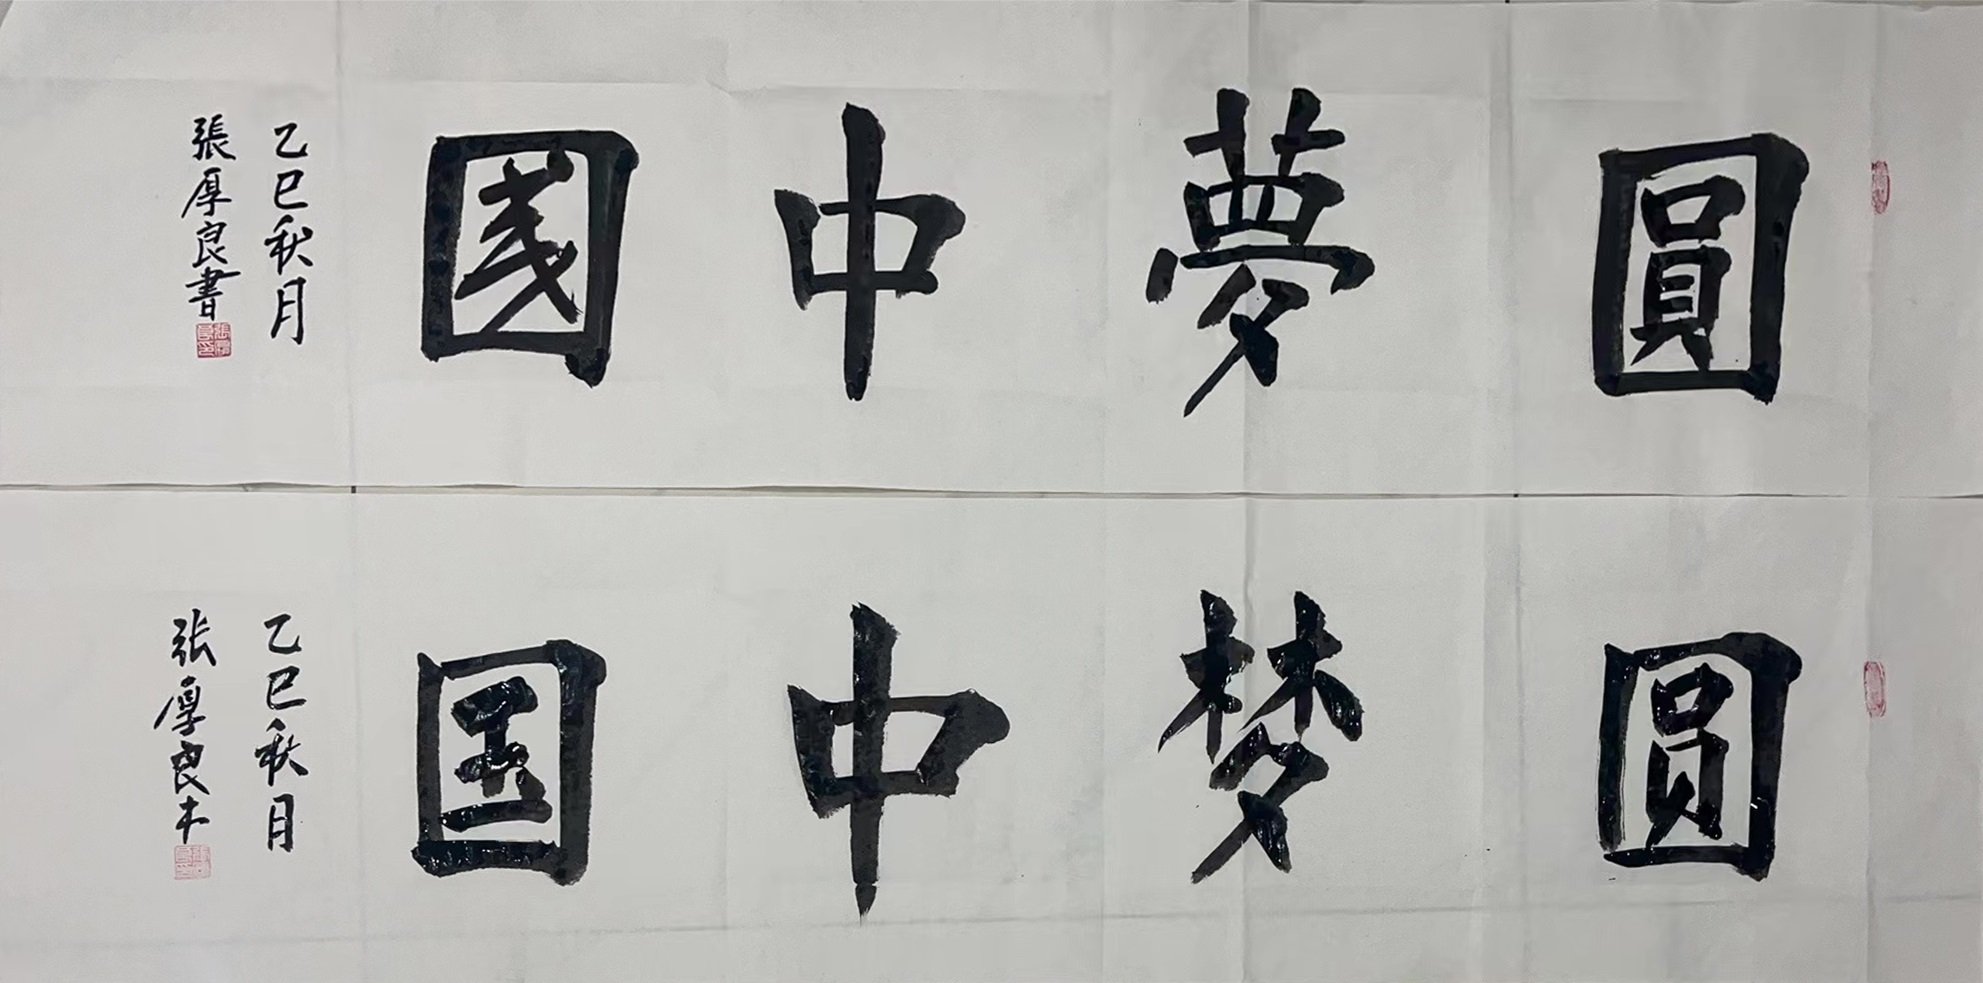 圓夢中國
乙巳秋月
張厚良書
圆梦中国
乙巳秋月
张厚良书